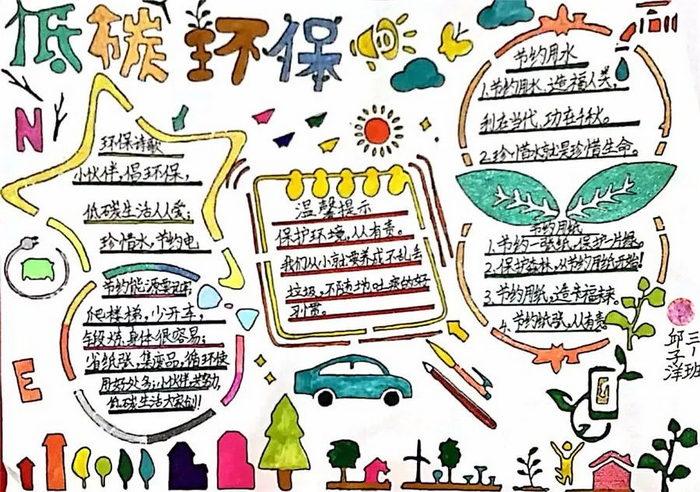 低碳环保
N
E
环保诗歌
小伙伴,倡环保,
低碳生活人人爱;
珍惜水,节约电
节约能源要记牢;
爬楼梯,少开车,
锻炼身体很容易;
省纸张,集废品,循环使
用好处多;小伙伴,共努力,
低碳生活大家创!
温馨提示
保护环境,从有责。
我们从小就要养成不乱丢
垃圾,不随地吐痰的好
习惯。
节约用水
1.节约用水,造福人类,
利在当代,功在千秋。
2.珍惜水就是珍惜生命。
节约用纸
1.节约一张纸,保护一片绿。
2.保护森林,从节约用纸开始!
3.节约用纸,造幸福
4.节约纸张,从有责
三八班
邱子洋